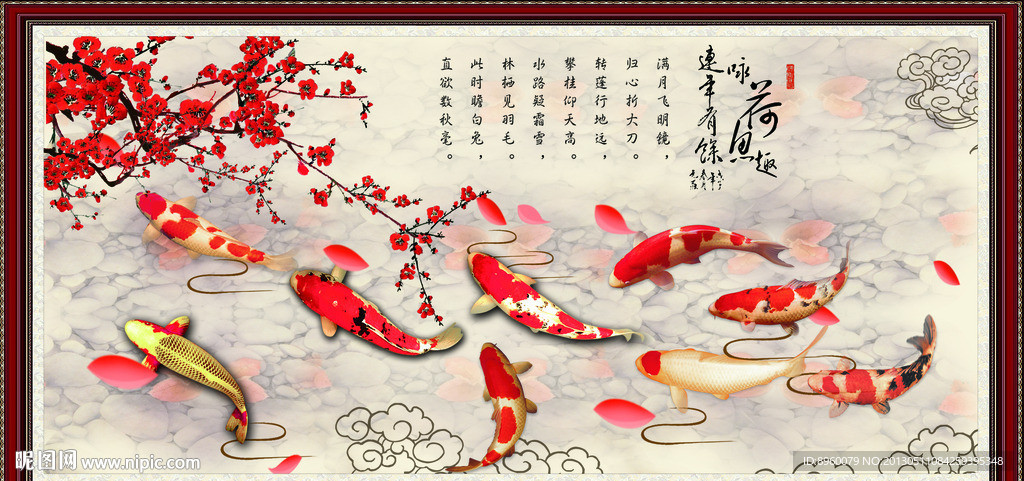 咏荷趣
連年有餘
满月飞明镜，
归心折大刀。
转莲行地远，
攀桂仰天高。
水路疑霜雪，
林栖见羽毛。
此时瞻白兔，
直欲数秋毫。
昵图网 www.nipic.com
ID:8960079 NO:20130511084259395348